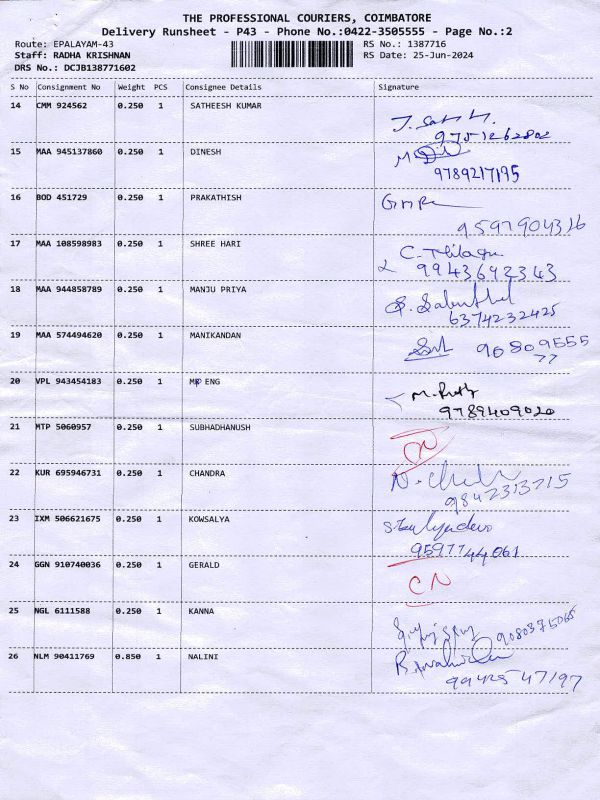 THE PROFESSIONAL COURIERS, COIMBATORE
Delivery Runsheet - P43 - Phone No.:0422-3505555 - Page No.:2
Route: EPALAYAM-43 RS No.: 1387716
Staff: RADHA KRISHNAN RS Date: 25-Jun-2024
DRS No.: DCJB138771602
S No Consignment No Weight PCS Consignee Details Signature
14 CMM 924562 0.250 1 SATHEESH KUMAR
9751262802
15 MAA 945137860 0.250 1 DINESH
9789217195
16 BOD 451729 0.250 1 PRAKATHISH
9597904316
17 MAA 108598983 0.250 1 SHREE HARI
9943692343
18 MAA 944858789 0.250 1 MANJU PRIYA
6374232425
19 MAA 574494620 0.250 1 MANIKANDAN
90809555
77
20 VPL 943454183 0.250 1 MR ENG
9789409020
21 MTP 5060957 0.250 1 SUBHADHANUSH
CN
22 KUR 695946731 0.250 1 CHANDRA
9842313715
23 IXM 506621675 0.250 1 KOWSALYA
9597744061
24 GGN 910740036 0.250 1 GERALD
CN
25 NGL 6111588 0.250 1 KANNA
9080375065
26 NLM 90411769 0.850 1 NALINI
9942547197